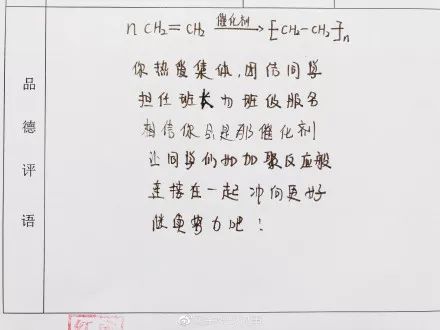 nCH₂=CH₂ 催化剂→ [CH₂-CH₂]n
品德评语
你热爱集体,团结同学
担任班长为班级服务
相信你就是那催化剂
让同学们如加聚反应般
连接在一起 冲向更好
继续努力吧!